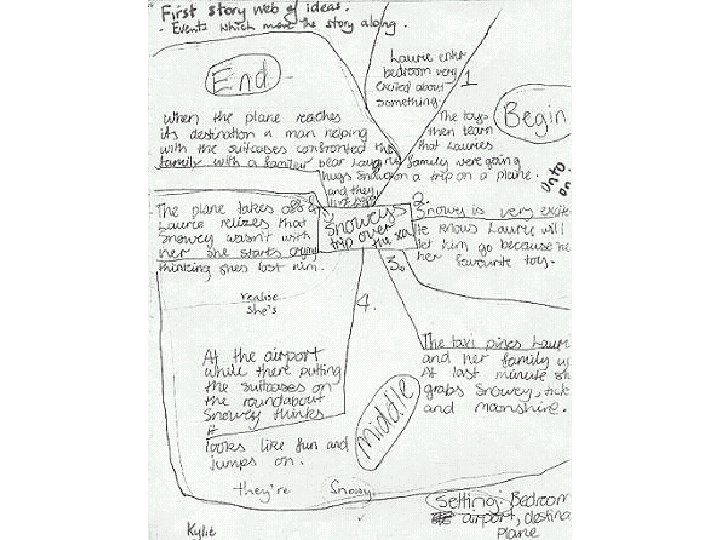 First story web of ideas.
- Events which move the story along.
Laurie enter
bedroom very
excited about
something.
1
The toys
then learn
that Lauries
family were going
on a trip on a plane.
Begin
onto
on
2.
Snowy is very excite
He knows Laurie will
let him go because he
her favourite toy.
Snowey's
trip over
the sea
3.
The taxi
and her family
At last minute
grabs Snowey,
and moonshine.
Middle
4.
At the airport
while there putting
the suitcases on
the roundabout
Snowey thinks
it
looks like fun and
jumps on.
they're Snowy
realise
she's
The plane takes off &
Laurie relizes that
Snowey wasn't with
her she starts crying
thinking shes lost him.
End
When the plane reaches
its destination a man helping
with the suitcases confronted the
family with a familer bear Laurie
hugs Snowey
and they
Setting: Bedroom
airport, destina
Plane
Kylie